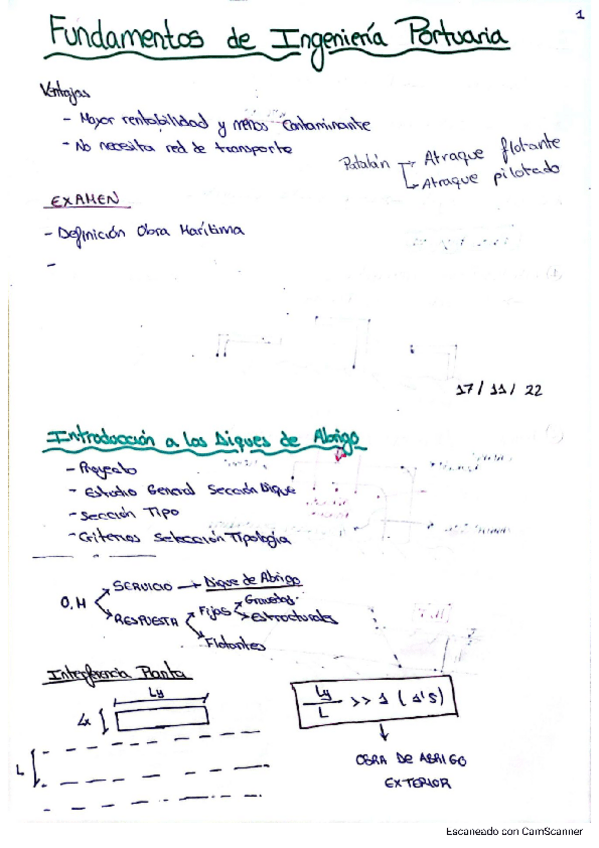 1
Fundamentos de Ingeniería Portuaria
Ventajas
- Mayor rentabilidad y menos contaminante
- No necesita red de transporte
Atraque flotante
Atraque pilotado
EXAMEN
- Definición Obra Marítima
-
17/11/22
Introducción a los Diques de Abrigo
- Proyecto
- Estudio General Sección Dique
- Sección Tipo
- Criterios Selección Tipología
O.M
SERVICIO → Dique de Abrigo
RESPUESTA
Fijos
Gravedad
Estructurales
Flotantes
Interferencia Planta
Ly
Lx
L
Ly/L >> 1 (1'5)
OBRA DE ABRIGO
EXTERIOR
Escaneado con CamScanner